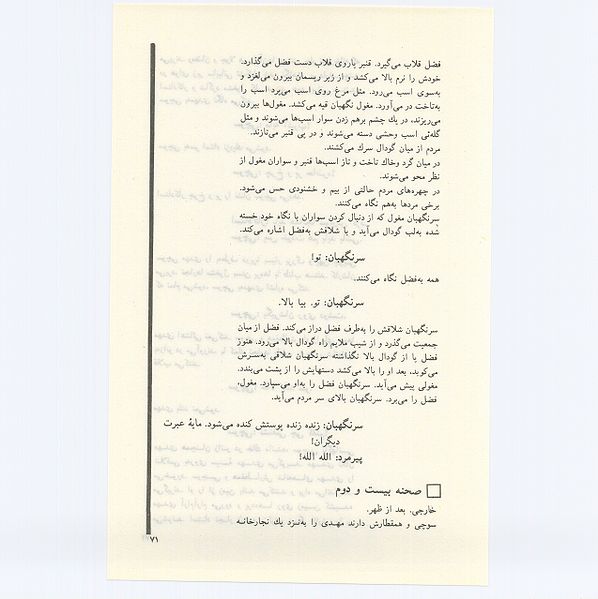 فضل قلاب می‌گیرد. قنبر یاروی قلاب دست فضل می‌گذارد.
خودش را نرم بالا می‌کشد و از زیر ریسمان بیرون می‌لغزد و
به‌سوی اسب می‌رود. مثل مرغ روی اسب می‌پرد اسب را
به‌تاخت در می‌آورد. مغول نگهبان قیه می‌کشد. مغول‌ها بیرون
می‌ریزند، در یك چشم برهم زدن سوار اسب‌ها می‌شوند و مثل
گله‌ئی اسب وحشی دسته می‌شوند و در پی قنبر می‌تازند.
مردم از میان گودال سرك می‌کشند.
در میان گرد وخاك تاخت و تاز اسب‌ها قنبر و سواران مغول از
نظر محو می‌شوند.
در چهره‌های مردم حالتی از بیم و خشنودی حس می‌شود.
برخی مردها به‌هم نگاه می‌کنند.
سرنگهبان مغول که از دنبال کردن سواران با نگاه خود خسته
شده به‌لب گودال می‌آید و با شلاقش به‌فضل اشاره می‌کند.
سرنگهبان: تو!
همه به‌فضل نگاه می‌کنند.
سرنگهبان: تو. بیا بالا.
سرنگهبان شلاقش را به‌طرف فضل دراز می‌کند. فضل از میان
جمعیت می‌گذرد و از شیب ملایم راه گودال بالا می‌رود. هنوز
فضل پا از گودال بالا نگذاشته سرنگهبان شلاقی به‌سرش
می‌کوبد، بعد او را بالا می‌کشد دستهایش را از پشت می‌بندد.
مغولی پیش می‌آید. سرنگهبان فضل را به‌او می‌سپارد. مغول،
فضل را می‌برد. سرنگهبان بالای سر مردم می‌آید.
سرنگهبان: زنده زنده پوستش کنده می‌شود. مایهٔ عبرت
دیگران!
پیرمرد: الله الله!
صحنه بیست و دوم
خارجی. بعد از ظهر.
سوچی و همقطارش دارند مهدی را به‌نزد یك نجارخانه
۷۱